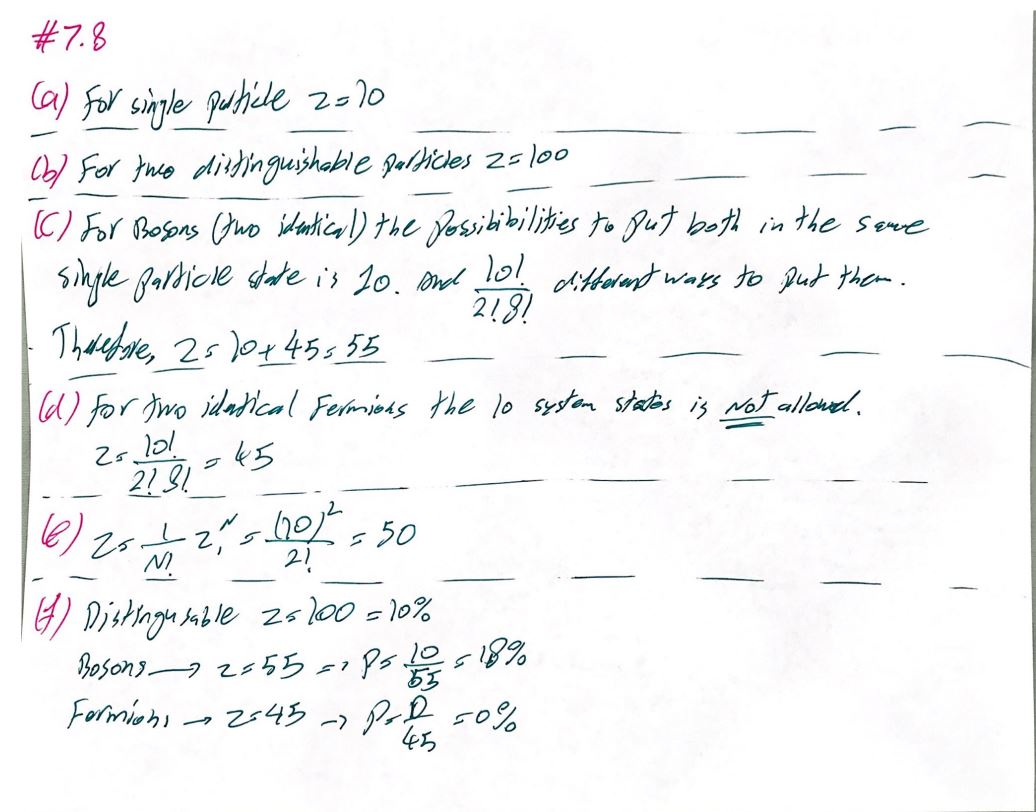 #7.8
(a) For single particle Z=10
(b) For two distinguishable particles Z=100
(C) For Bosons (two identical) the possibibilities to put both in the same
single particle state is 10. and 10!/2!8! different ways to put them.
Therefore, Z=10+45=55
(d) For two identical Fermions the 10 system states is NOT allowed.
Z=10!/2!8! = 45
(e) Z=1/N! Z₁ᴺ = (10)²/2! = 50
(f) Distingusable Z=100 = 10%
Bosons → Z=55 => P=10/55 = 18%
Fermions → Z=45 → P=0/45 = 0%